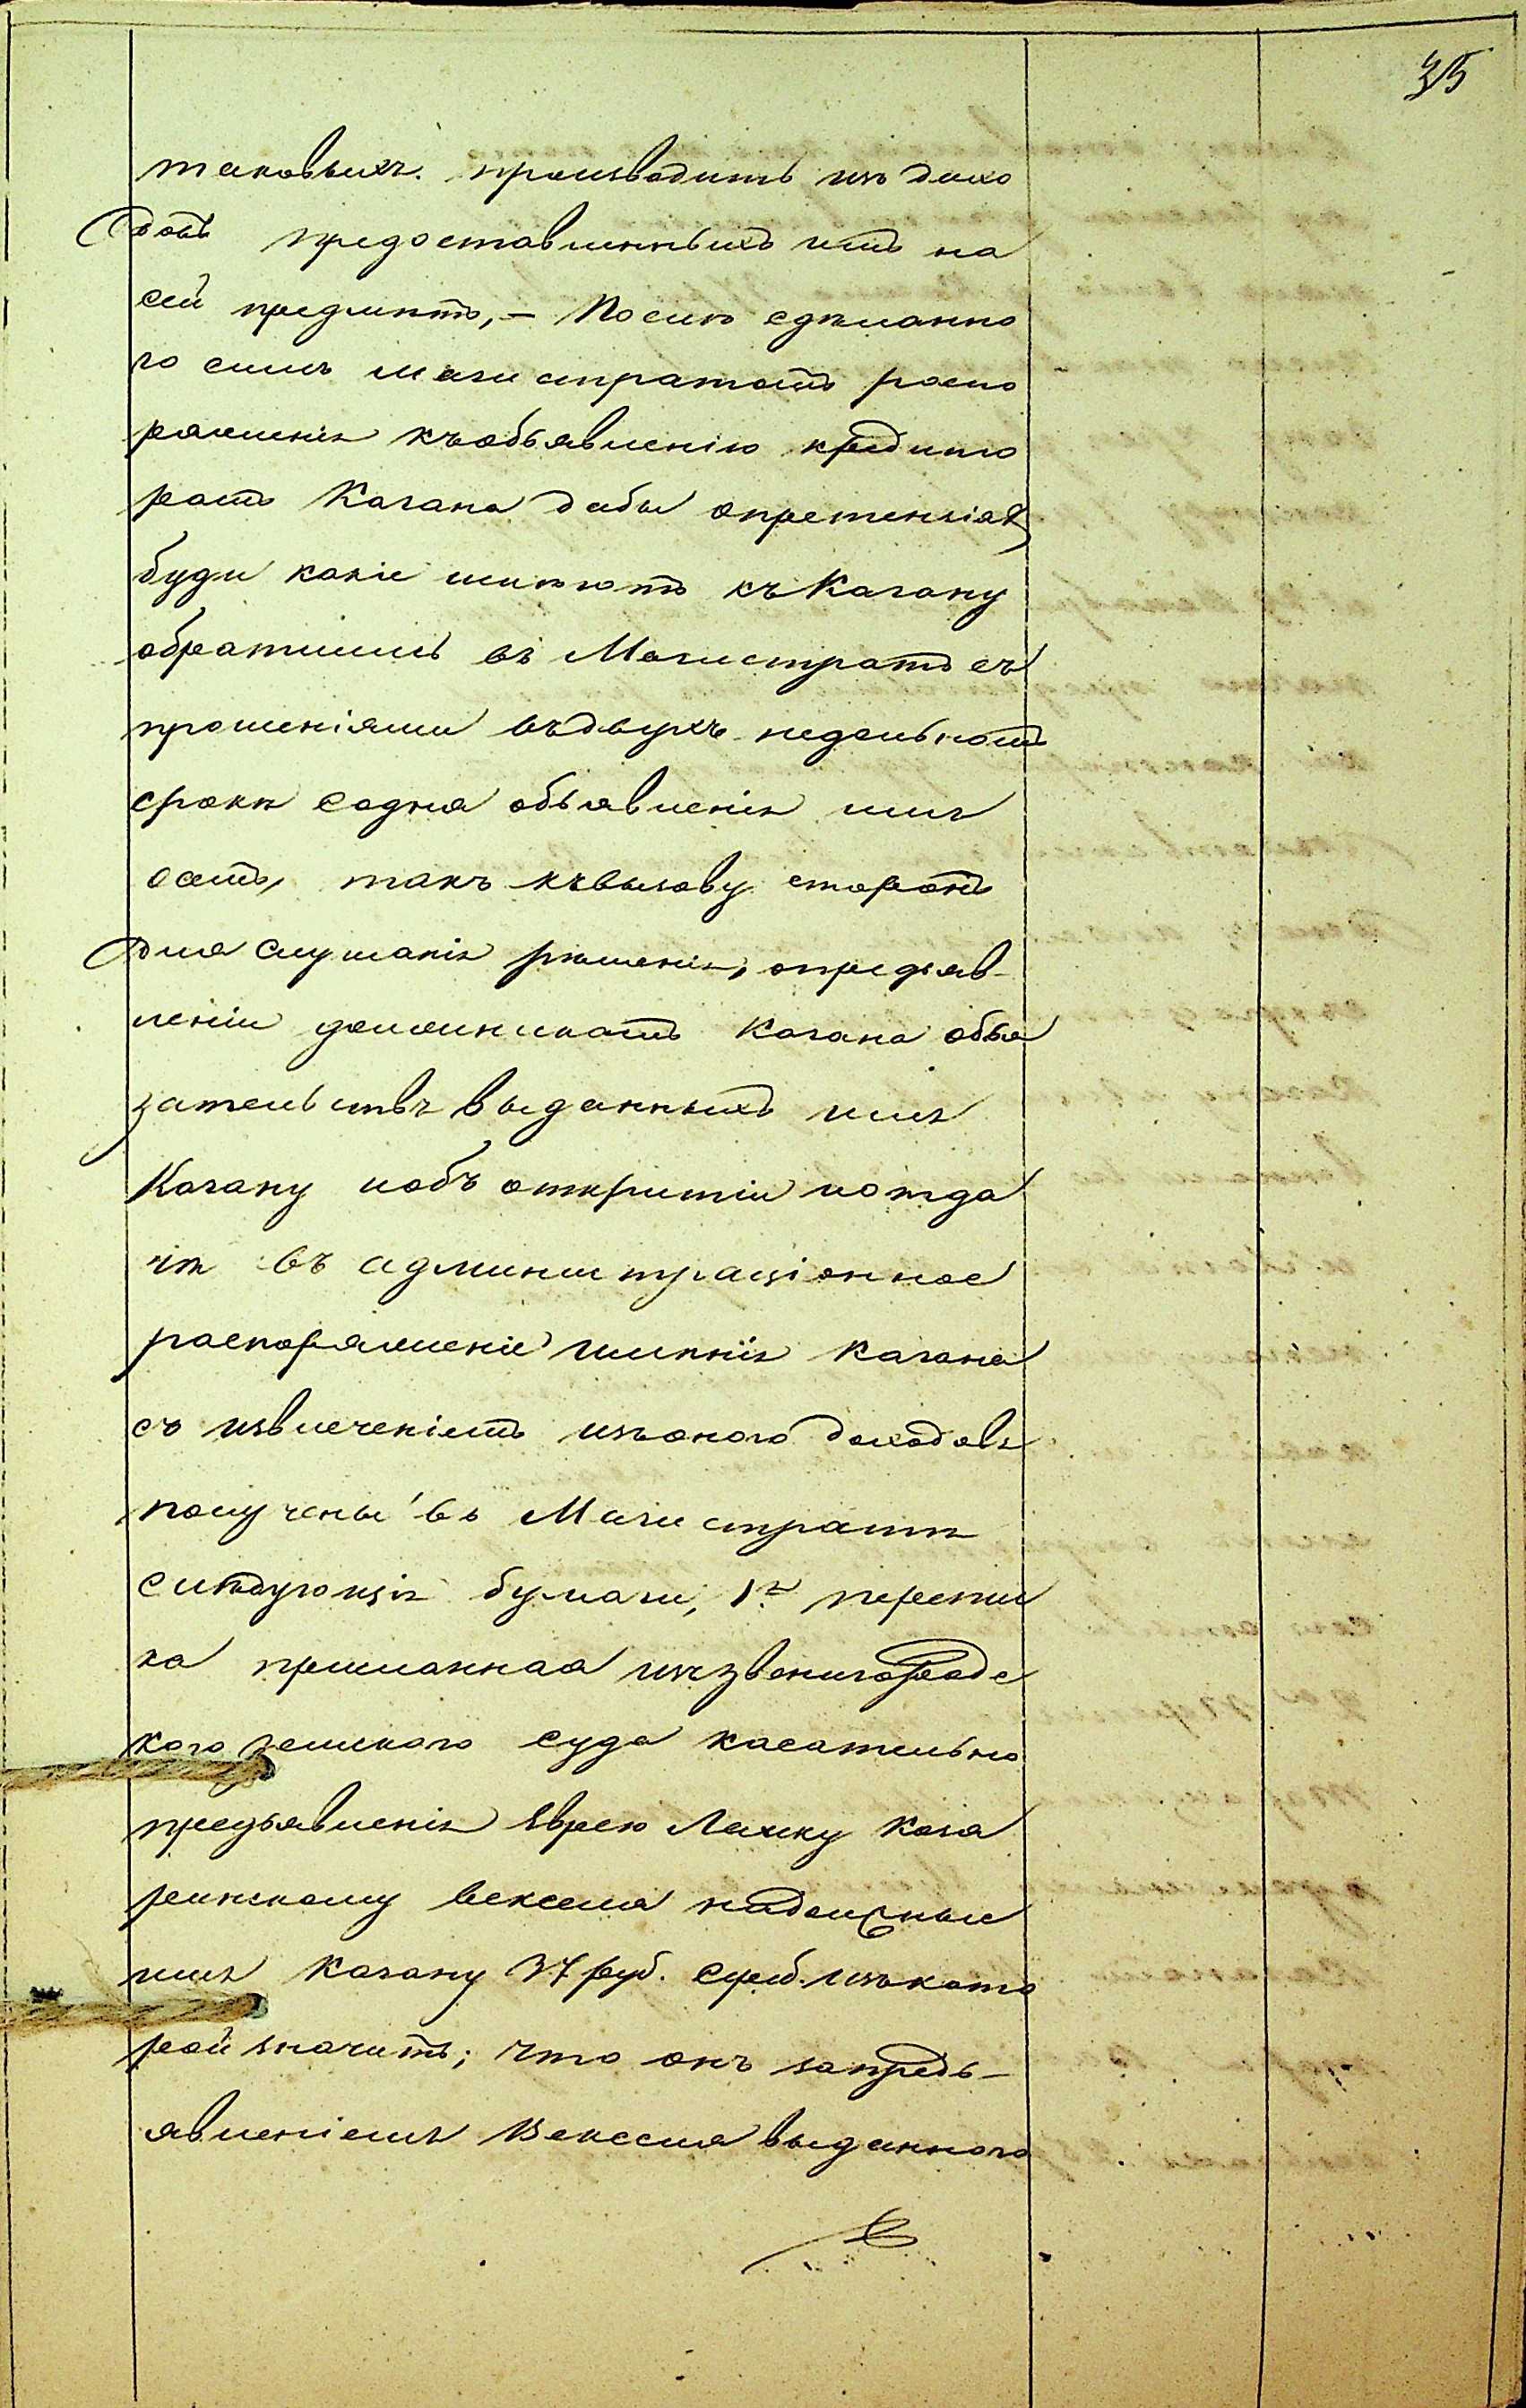 35
таковыхъ. производить изъ дохо
довъ предоставленныхъ имъ на
сей предметъ, – По сему сдѣланно
го симъ магистратомъ распо
ряженія къ объявленію кредито
рамъ Кагана дабы о претензіяхъ
буди какіе имѣютъ къ Кагану
обратились въ Магистратъ съ
прошеніями въ двухъ недельномъ
срокѣ содня объявленія имъ
осемъ, такъ къ вызову сторонъ
для слушанія рѣшенія, о предъяв-
леніи должникамъ Кагана обя
зательствъ выданныхъ имъ
Кагану и объ открытіи и отда
чѣ въ администраціонное
распоряженіе имѣнія Кагана
съ извлеченіемъ изъ оного доходовъ
получены въ Магистратѣ
слѣдующія бумаги, 1я перепис
ка присланная изъ Звенигородс
кого земского суда касательно
предъявленія Еврею Лейзку Кага
рлинскому векселя на должные
имъ Кагану 37 руб. сереб. изъ кото
рой значитъ; что онъ за предъ-
явленіемъ Векселя выданного